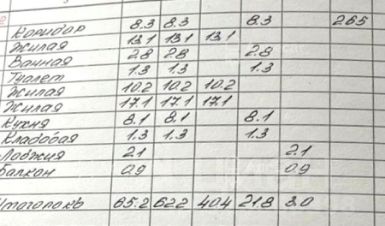 Коридор 8.3 8.3 8.3 265
Жилая 13.1 13.1 13.1
Ванная 2.8 2.8 2.8
Туалет 1.3 1.3 1.3
Жилая 10.2 10.2 10.2
Жилая 17.1 17.1 17.1
Кухня 8.1 8.1 8.1
Кладовая 1.3 1.3 1.3
Лоджия 2.1 2.1
Балкон 0.9 0.9
65.2 62.2 40.4 21.8 3.0